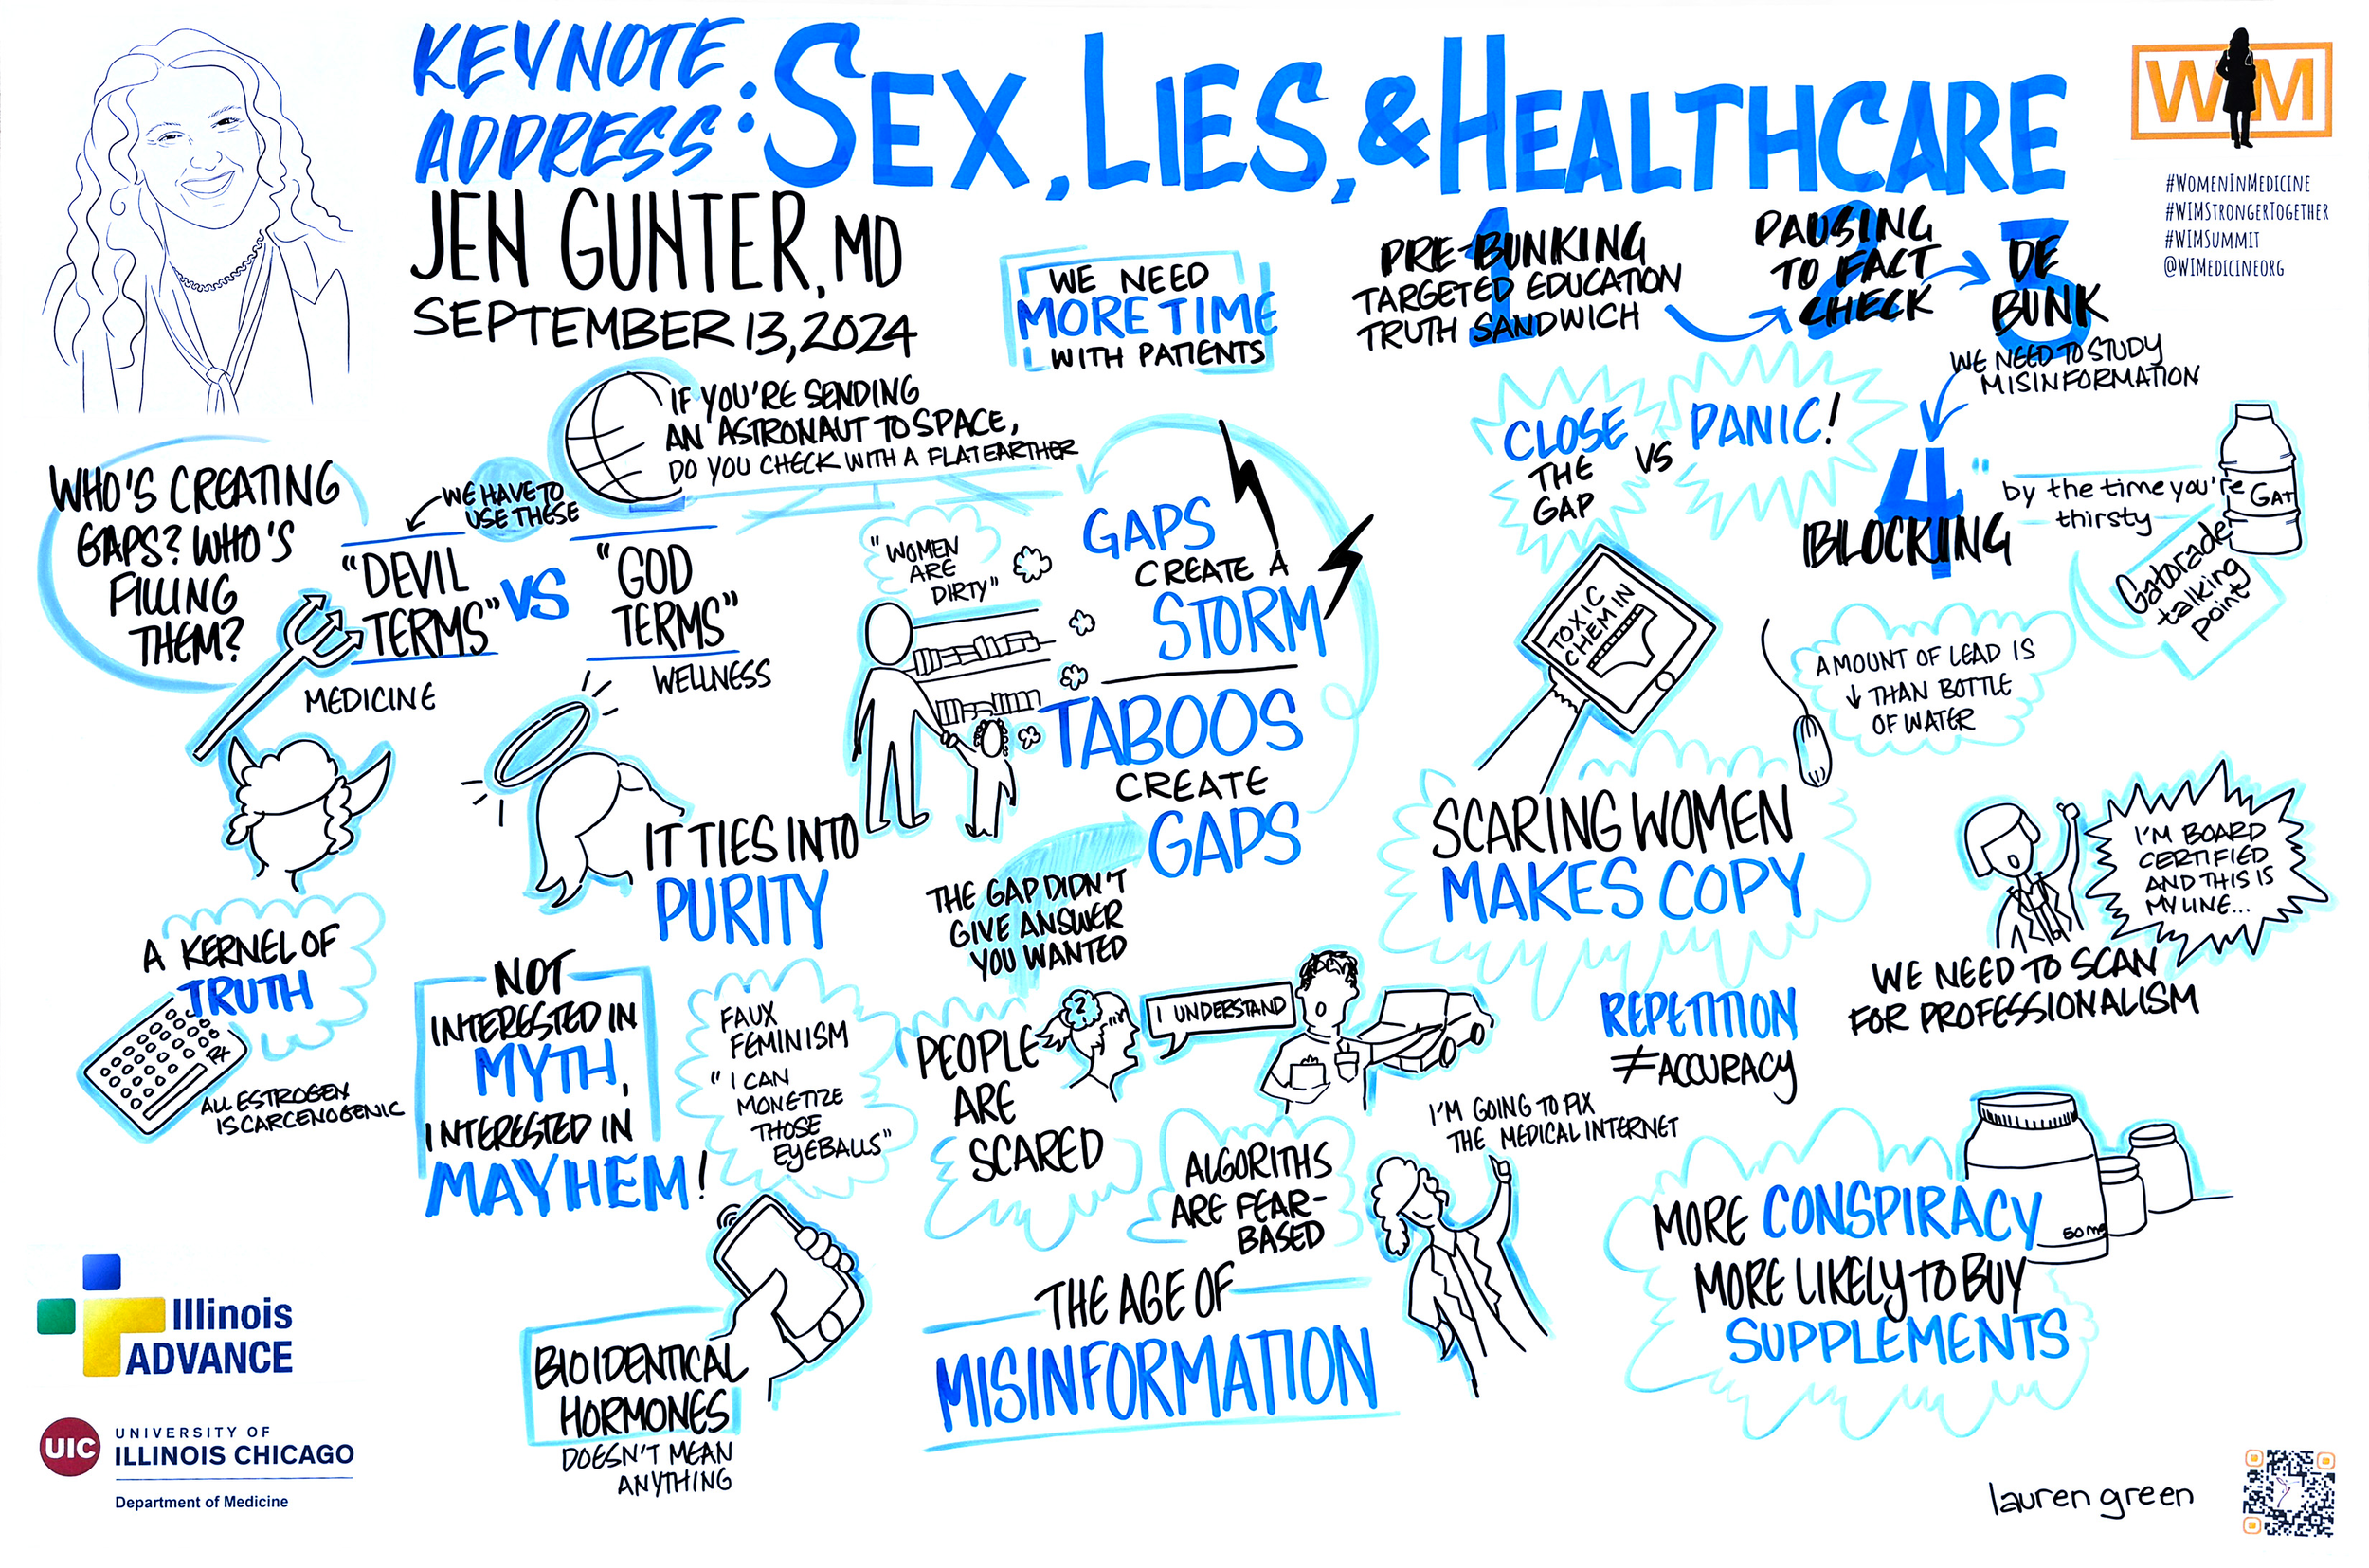 KEYNOTE
ADDRESS:
SEX, LIES, & HEALTHCARE
JEN GUNTER, MD
SEPTEMBER 13, 2024
WIM
#WOMENINMEDICINE
#WIMSTRONGERTOGETHER
#WIMSUMMIT
@WIMEDICINEORG
WE NEED
MORE TIME
WITH PATIENTS
1
PRE-BUNKING
TARGETED EDUCATION
TRUTH SANDWICH
2
PAUSING
TO FACT
CHECK
3
DE
BUNK
WE NEED TO STUDY
MISINFORMATION
4
BLOCKING
"by the time you're
thirsty
GAT
Gatorade
talking
point
IF YOU'RE SENDING
AN ASTRONAUT TO SPACE,
DO YOU CHECK WITH A FLAT EARTHER
WHO'S CREATING
GAPS? WHO'S
FILLING
THEM?
WE HAVE TO
USE THESE
"DEVIL
TERMS"
VS
"GOD
TERMS"
MEDICINE
WELLNESS
IT TIES INTO
PURITY
"WOMEN
ARE
DIRTY"
GAPS
CREATE A
STORM
TABOOS
CREATE
GAPS
THE GAP DIDN'T
GIVE ANSWER
YOU WANTED
CLOSE
THE
GAP
VS
PANIC!
TOXIC
CHEM IN
AMOUNT OF LEAD IS
↓ THAN BOTTLE
OF WATER
SCARING WOMEN
MAKES COPY
I'M BOARD
CERTIFIED
AND THIS IS
MY LINE...
WE NEED TO SCAN
FOR PROFESSIONALISM
REPETITION
≠ ACCURACY
A KERNEL OF
TRUTH
RX
ALL ESTROGEN
IS CARCENOGENIC
NOT
INTERESTED IN
MYTH,
INTERESTED IN
MAYHEM!
FAUX
FEMINISM
"I CAN
MONETIZE
THOSE
EYEBALLS"
PEOPLE
ARE
SCARED
?
I UNDERSTAND
ALGORITHS
ARE FEAR-
BASED
I'M GOING TO FIX
THE MEDICAL INTERNET
THE AGE OF
MISINFORMATION
BIOIDENTICAL
HORMONES
DOESN'T MEAN
ANYTHING
MORE CONSPIRACY
MORE LIKELY TO BUY
SUPPLEMENTS
50mg
Illinois
ADVANCE
UIC
UNIVERSITY OF
ILLINOIS CHICAGO
Department of Medicine
lauren green